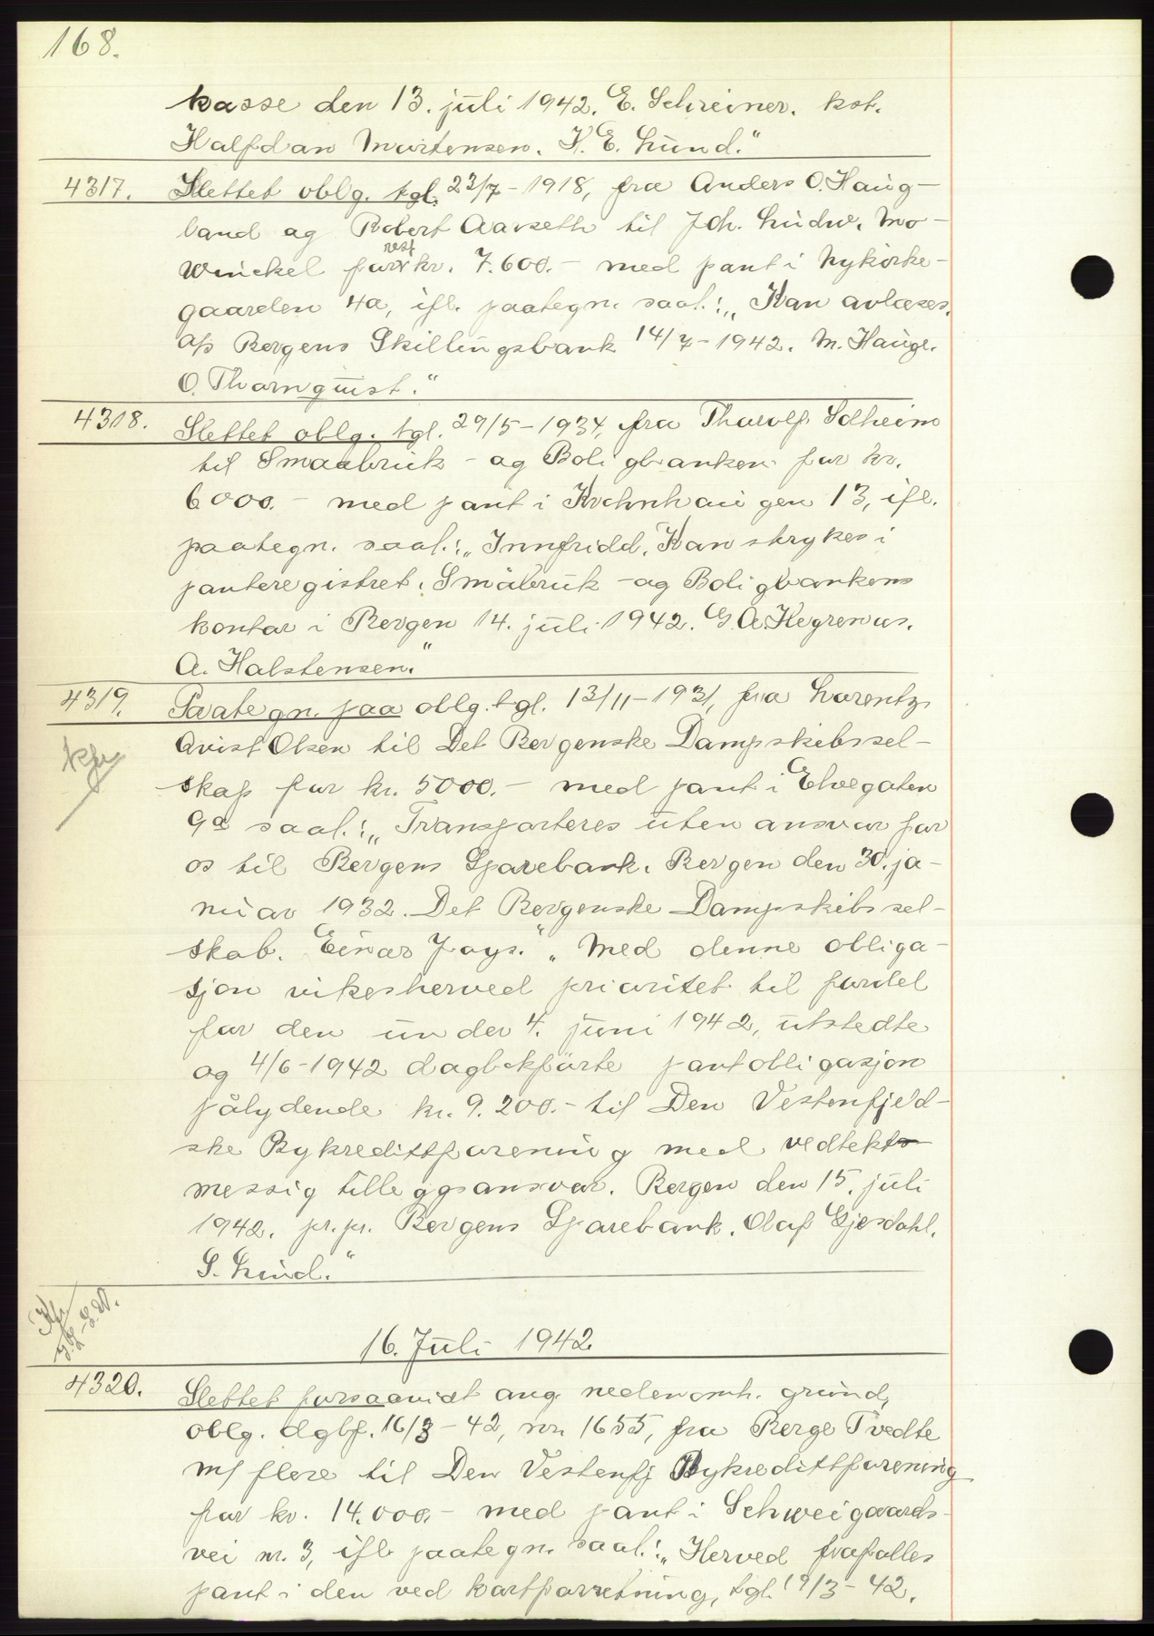 168.
kasse den 13. juli 1942. E. Schreiner. kst.
Halfdan Martensen. K. E. Lund."
4317. Slettet oblg. tgl. 23/7-1918, fra Anders O. Haug-
land og Robert Aarseth til Joh. Ludw. Mo-
winckel for rest kr. 7.600.- med pant i Nykirke-
gaarden 4a, ifl. paategn. saal.: „Kan avlæses.
A/s Bergens Skillingsbank 14/7-1942. M. Hauge.
O. Thornquist."
4318. Slettet oblg. tgl. 29/5-1934, fra Thorolf Solheim
til Smaabruk- og Boligbanken for kr.
6000.- med pant i Krohnhaugen 13, ifl.
paategn. saal.: „Innfridd. Kan strykes i
panteregistret. Småbruk- og Boligbankens
kontor i Bergen 14. juli 1942. G. A. Hegrenæs.
A. Halstensen."
4319. Paategn. paa oblg. tgl. 13/11-1931, fra Lorentz
Qvist Olsen til Det Bergenske Dampskibssel-
skap for kr. 5000.- med pant i Elvegaten
9a saal.: „Transporteres uten ansvar for
os til Bergens Sparebank. Bergen den 30. ja-
nuar 1932. Det Bergenske Dampskibssel-
skab. Einar Joys." „Med denne obliga-
sjon vikes herved prioritet til fordel
for den under 4. juni 1942, utstedte
og 4/6-1942 dagbokførte pantobligasjon
pålydende kr. 9.200.- til Den Vestenfjeld-
ske Bykredittforening med vedtekts-
messig tilleggsansvar. Bergen den 15. juli
1942. pr.pr. Bergens Sparebank. Olaf Gjesdahl.
S. Lund."
16. Juli 1942
4320. Slettet forsaavidt ang. nedennevnte grund,
oblg. dgbf. 16/3-42, nr. 1655, fra Berge Tvedte
m/ flere til Den Vestenfj Bykredittforening
for kr. 14.000.- med pant i Schweigaards-
vei nr. 3, ifl. paategn. saal.: „Herved frafalles
pant i den ved kartforretning, tgl. 19/3-42.